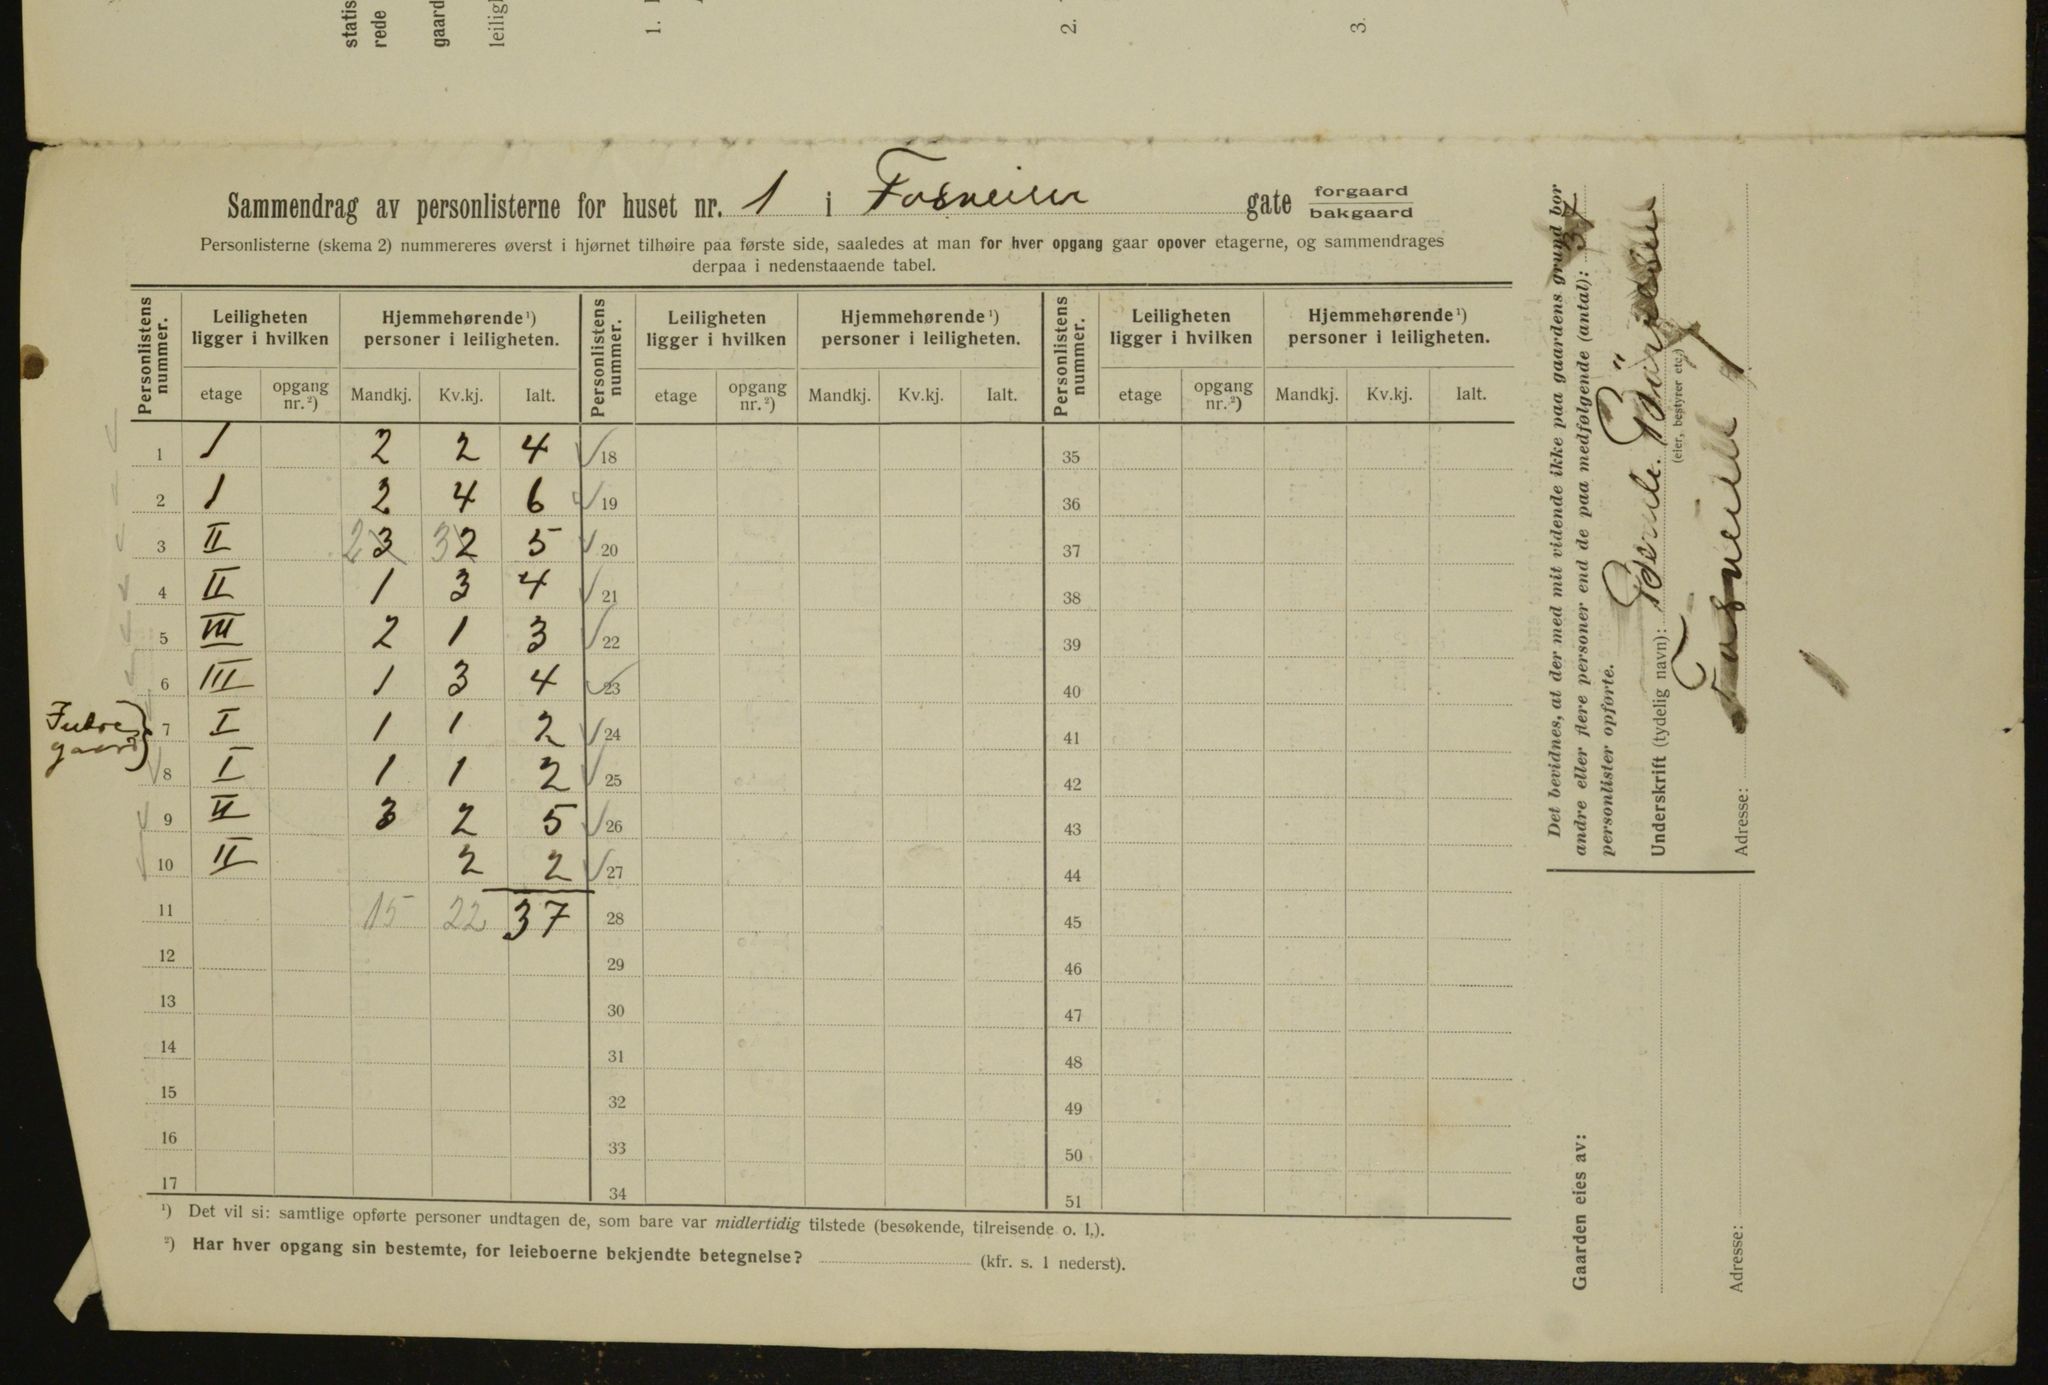 statis
rede
gaard
leilig
1.
2.
3.
Sammendrag av personlisterne for huset nr. 1 i Fosveien gate forgaard
bakgaard
Personlisterne (skema 2) nummereres øverst i hjørnet tilhøire paa første side, saaledes at man for hver opgang gaar opover etagerne, og sammendrages
derpaa i nedenstaaende tabel.
Personlistens nummer. Leiligheten ligger i hvilken Hjemmehørende ¹) personer i leiligheten. Personlistens nummer. Leiligheten ligger i hvilken Hjemmehørende ¹) personer i leiligheten. Personlistens nummer. Leiligheten ligger i hvilken Hjemmehørende ¹) personer i leiligheten.
etage opgang nr. ²) Mandkj. Kv.kj. Ialt. etage opgang nr. ²) Mandkj. Kv.kj. Ialt. etage opgang nr. ²) Mandkj. Kv.kj. Ialt.
1 I 2 2 4 18 35
2 I 2 4 6 19 36
3 II 2 3 3 2 5 20 37
4 II 1 3 4 21 38
5 III 2 1 3 22 39
6 III 1 3 4 23 40
7 I 1 1 2 24 41
gaard
8 I 1 1 2 25 42
9 II 3 2 5 26 43
10 II 2 2 27 44
11 15 22 37 28 45
12 29 46
13 30 47
14 31 48
15 32 49
16 33 50
17 34 51
¹) Det vil si: samtlige opførte personer undtagen de, som bare var midlertidig tilstede (besøkende, tilreisende o. l.).
²) Har hver opgang sin bestemte, for leieboerne bekjendte betegnelse? (kfr. s. 1 nederst).
Det bevidnes, at der med mit vidende ikke paa gaardens grund bor
andre eller flere personer end de paa medfølgende (antal): 37
personlister opførte.
Underskrift (tydelig navn):
(eier, bestyrer etc.)
Adresse: Fosveien 1
1
Gaarden eies av:
Adresse: